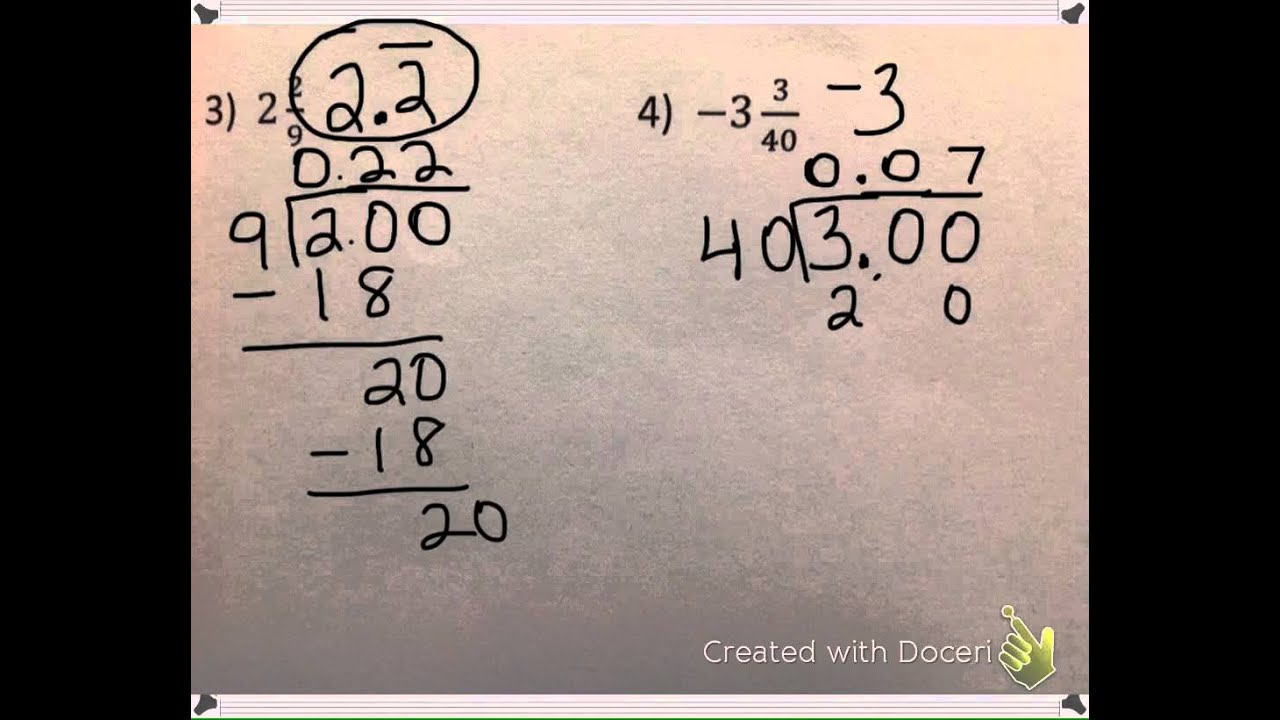 3) 2 2/9 2.2̅
0.22
9 2.00
- 18
20
- 18
20
4) -3 3/40 -3
0.07
40 3.00
2 0
Created with Doceri